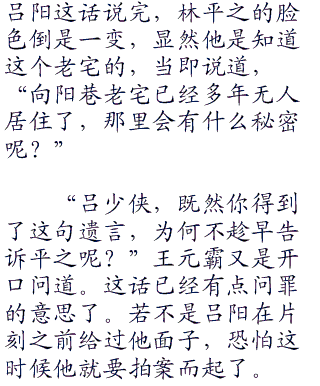 吕阳这话说完，林平之的脸
色倒是一变，显然他是知道
这个老宅的，当即说道，
“向阳巷老宅已经多年无人
居住了，那里会有什么秘密
呢？”
“吕少侠，既然你得到
了这句遗言，为何不趁早告
诉平之呢？”王元霸又是开
口问道。这话已经有点问罪
的意思了。若不是吕阳在片
刻之前给过他面子，恐怕这
时候他就要拍案而起了。